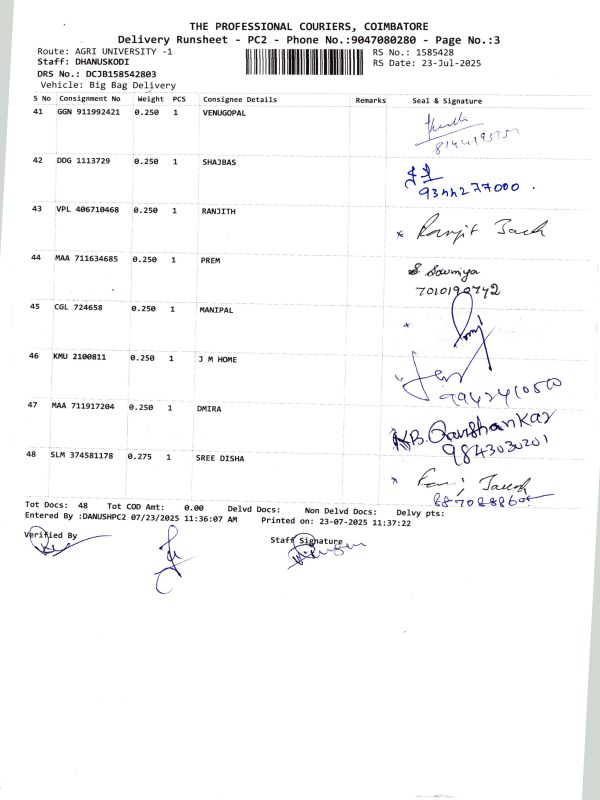 THE PROFESSIONAL COURIERS, COIMBATORE
Delivery Runsheet - PC2 - Phone No.:9047080280 - Page No.:3
Route: AGRI UNIVERSITY -1
RS No.: 1585428
Staff: DHANUSKODI
RS Date: 23-Jul-2025
DRS No.: DCJB158542803
Vehicle: Big Bag Delivery
S No Consignment No Weight PCS Consignee Details Remarks Seal & Signature
41 GGN 911992421 0.250 1 VENUGOPAL
42 DDG 1113729 0.250 1 SHAJBAS
9344277000 .
43 VPL 406710468 0.250 1 RANJITH
Ranjit
44 MAA 711634685 0.250 1 PREM
S Sowmiya
7010190742
45 CGL 724658 0.250 1 MANIPAL
46 KMU 2100811 0.250 1 J M HOME
9942410500
47 MAA 711917204 0.250 1 DMIRA
9843030201
48 SLM 374581178 0.275 1 SREE DISHA
Tot Docs: 48 Tot COD Amt: 0.00 Delvd Docs: Non Delvd Docs: Delvy pts:
Entered By :DANUSHPC2 07/23/2025 11:36:07 AM Printed on: 23-07-2025 11:37:22
Verified By
Staff Signature